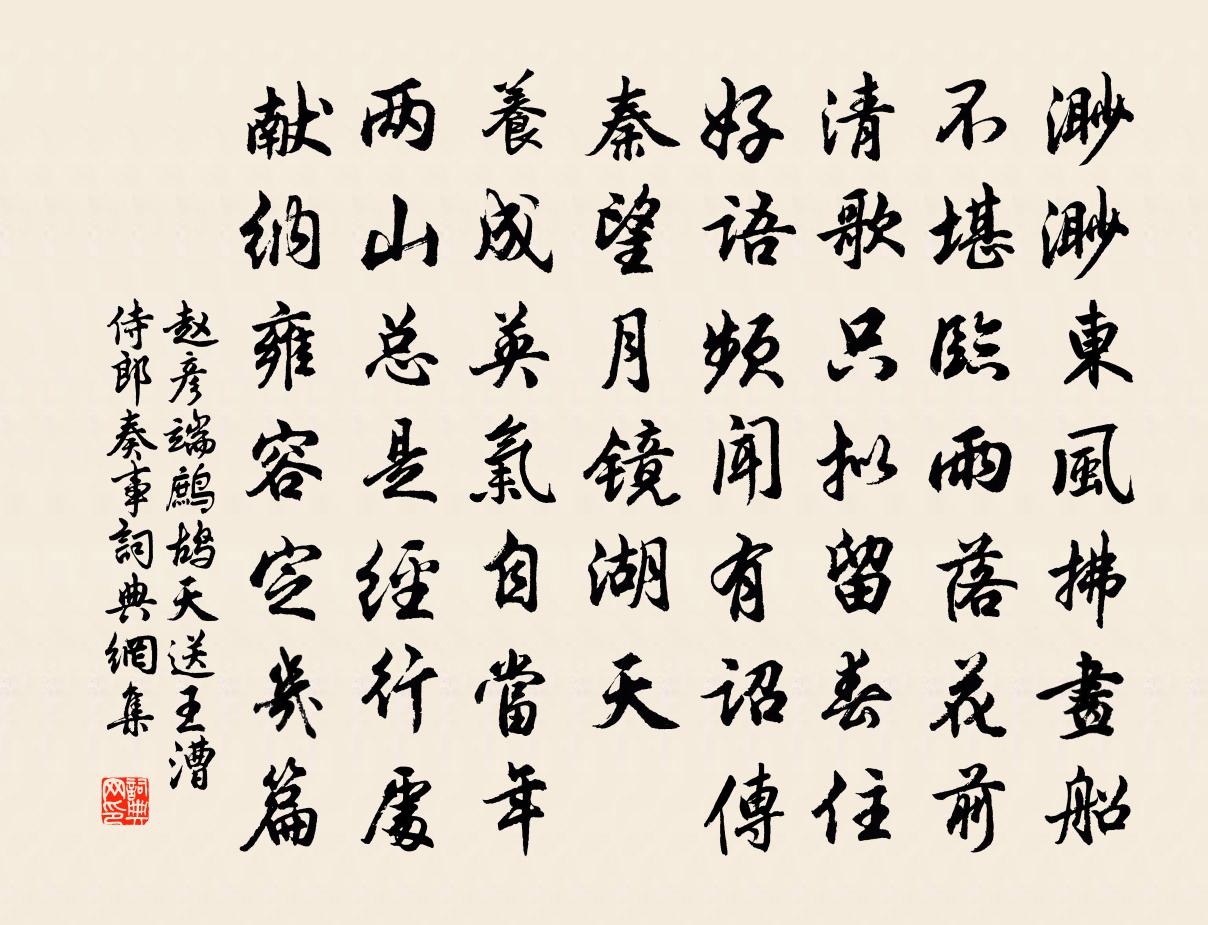 渺渺東風拂畫船
不堪臨雨落花前
清歌只拟留春住
好語頻聞有詔傳
秦望月鏡湖天
養成英氣自當年
两山总是經行處
献纳雍容定幾篇
赵彦端鹧鸪天送王漕
侍郎奏事詞典網集
詞典
网印